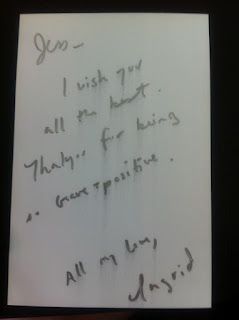 Jess –
I wish you
all the best.
Thankyou for being
so brave + positive.
All my love,
Ingrid